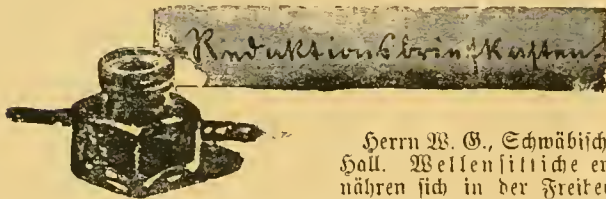 Redaktionsbriefkasten.
Herrn W. G., Schwäbisch
Hall. Wellensittiche er
nähren sich in der Freihei